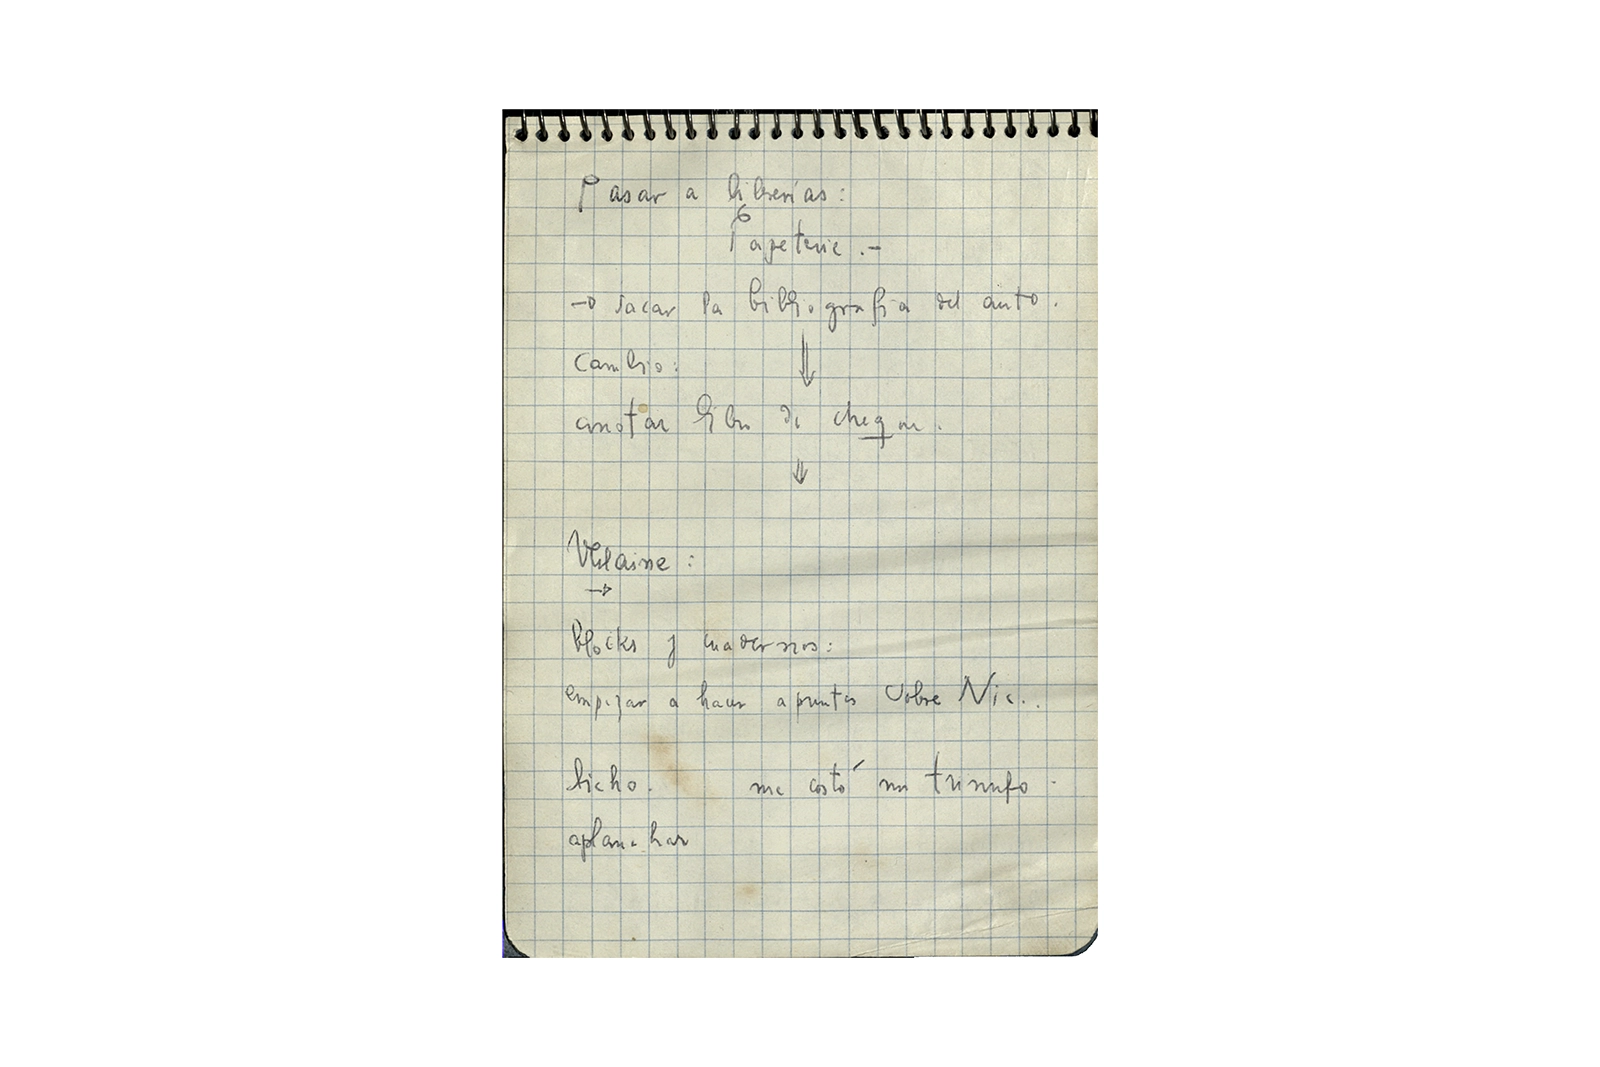 Pasar a librerías:
Papeterie.-
→ sacar la bibliografia del auto.
Cambio:
anotar libro de cheque.
Vilaine:
→
Blocks y cuadernos:
empezar a hacer apuntes sobre Nic..
bicho. me costó un triunfo.
aplanchar